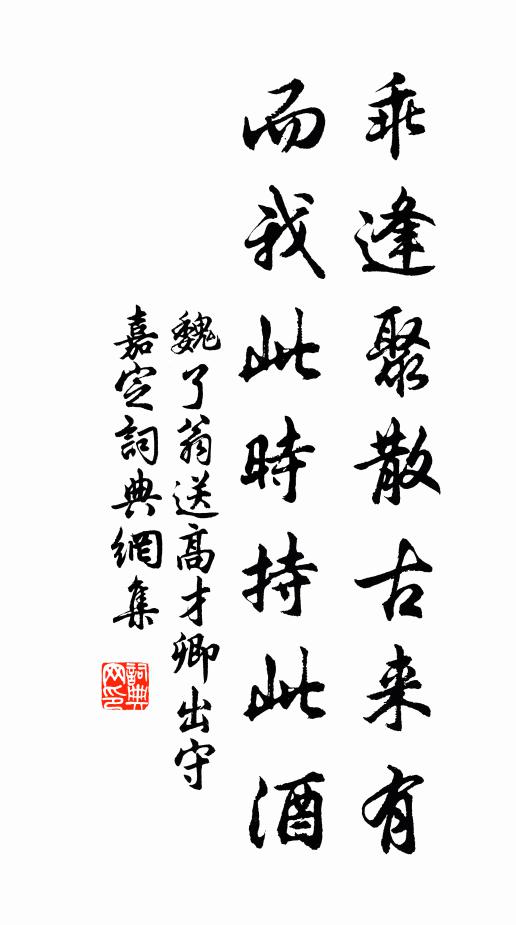 乖逢聚散古来有
而我此時持此酒
魏了翁送高才卿出守
嘉定詞典網集
詞典网印